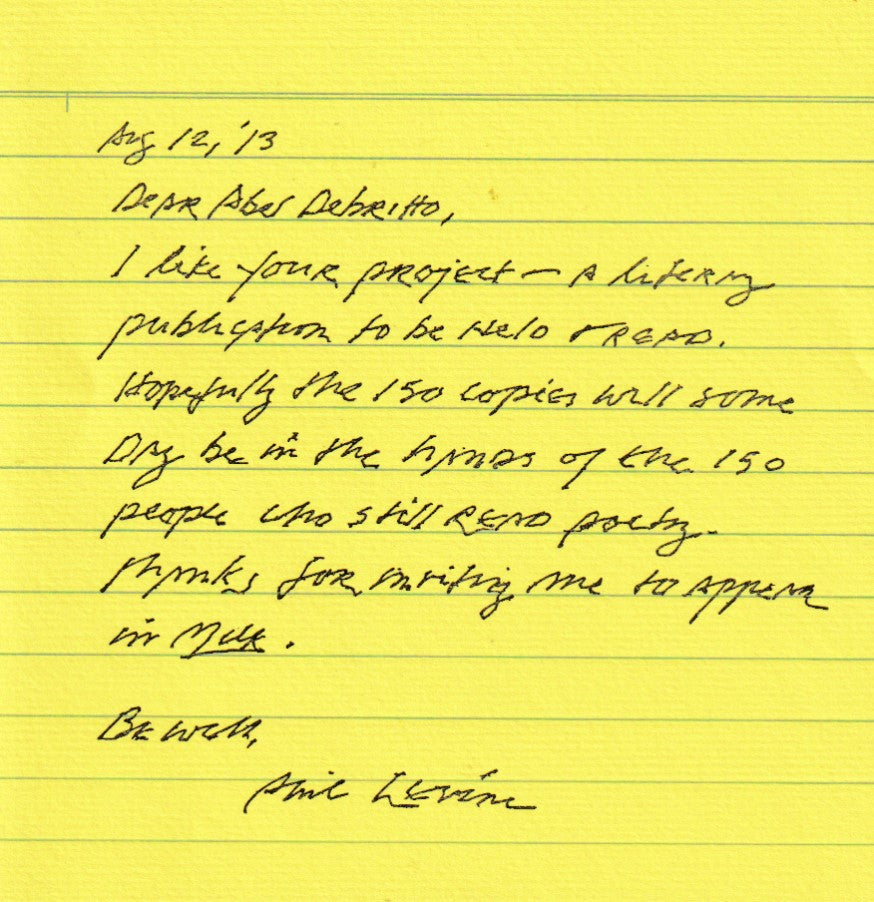 Aug 12, '13
Dear Abel Debritto,
I like your project — a literary
publication to be held & read.
Hopefully the 150 copies will some
day be in the hands of the 150
people who still read poetry.
Thanks for inviting me to appear
in Milk.
Be well,
Phil Levine